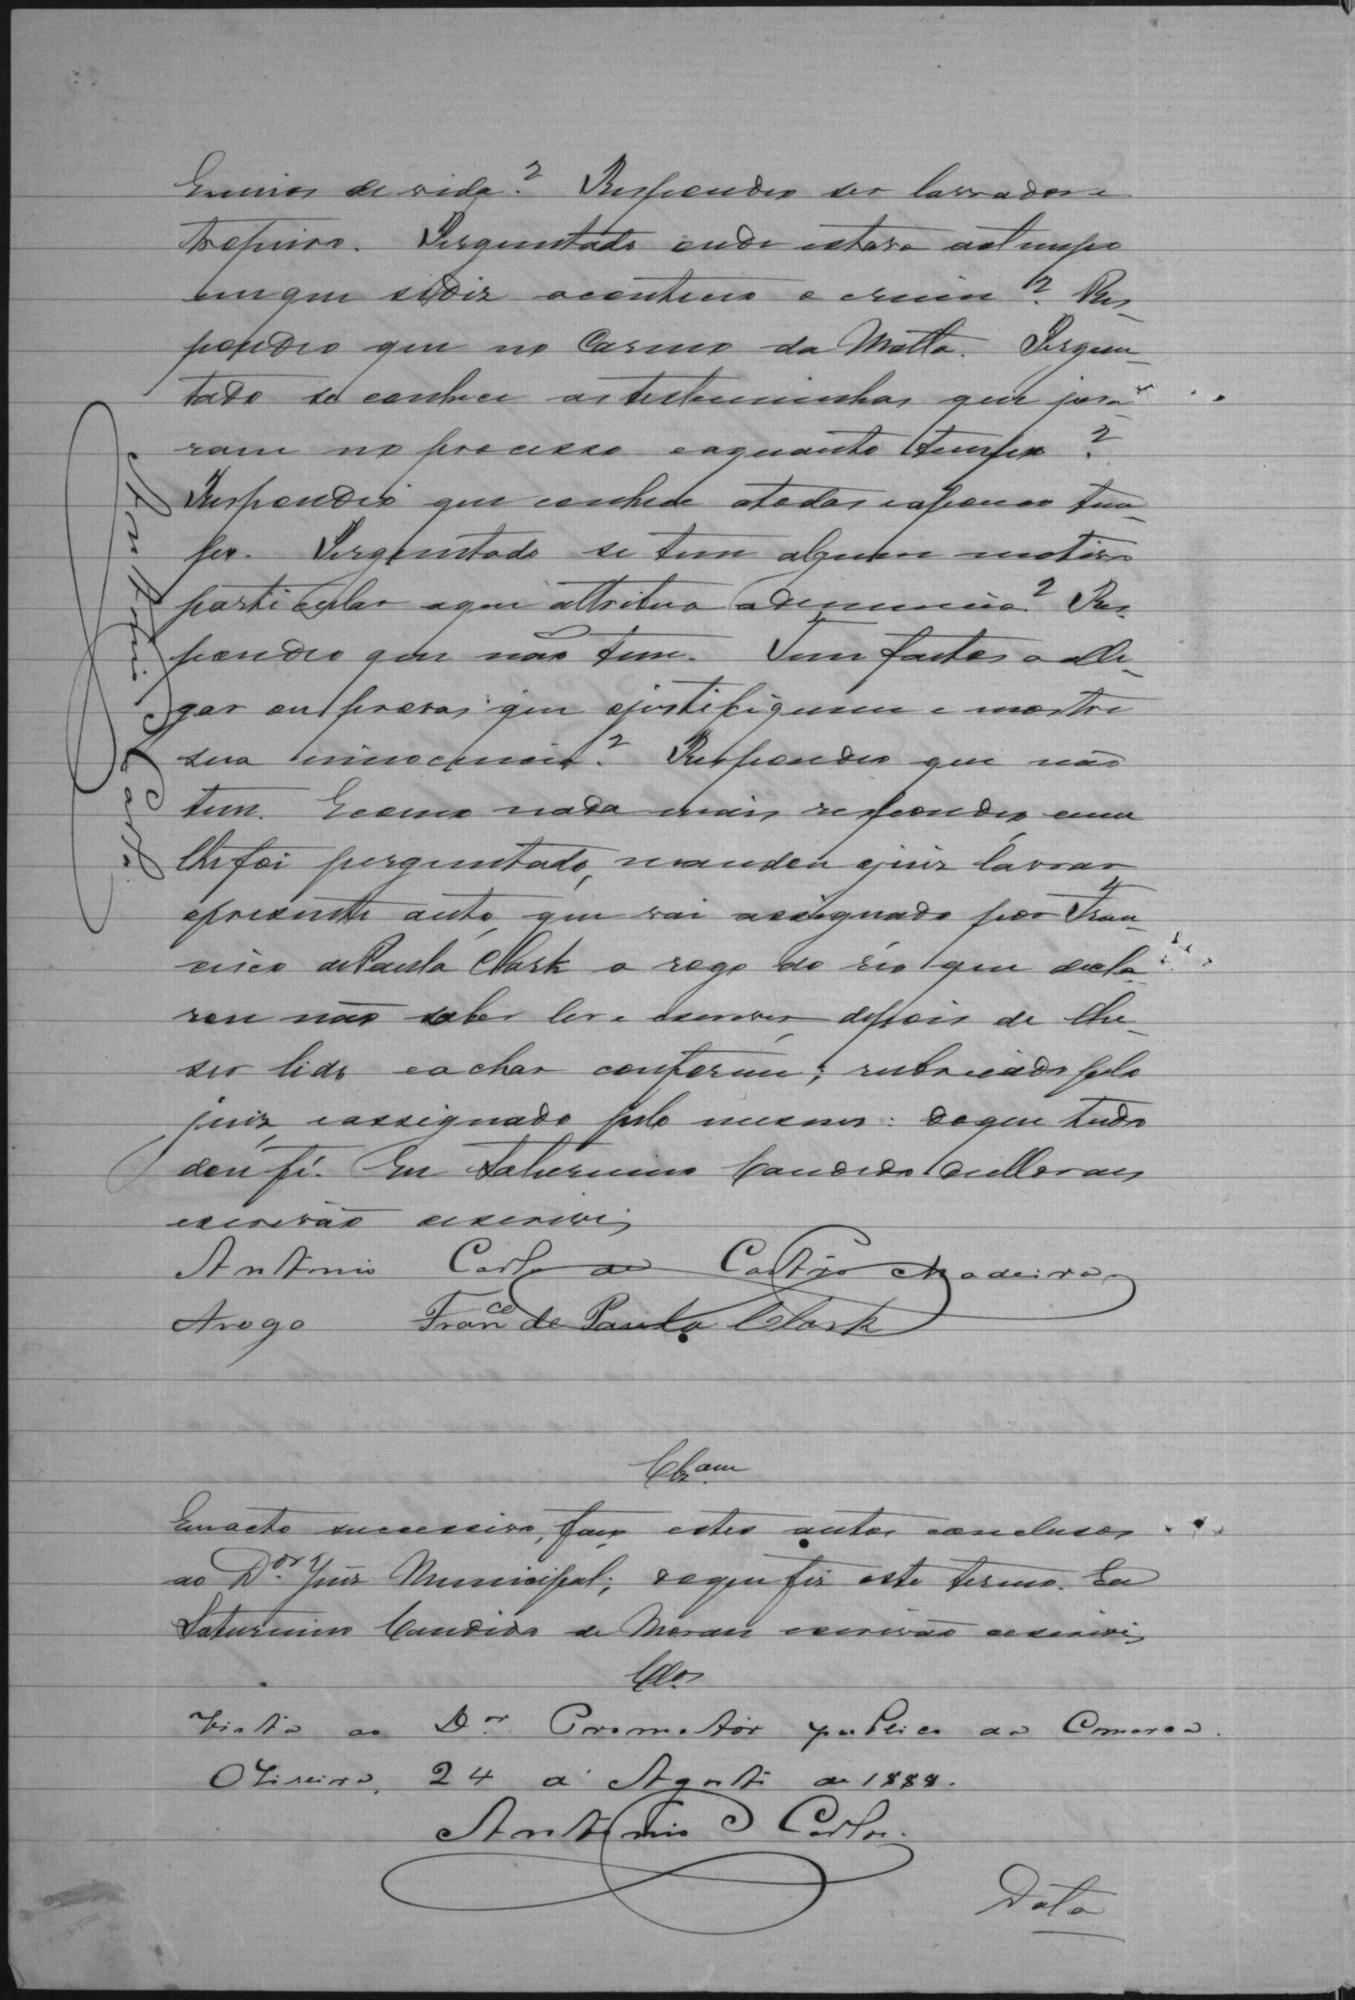 e meios de vida? Respondeo ser lavrador e
tropeiro. Perguntado onde estava ao tempo
em que se diz aconteceo o crime? Res-
pondeo que no Carmo da Matta. Pergun-
tado se conhece as testemunhas que jura-
ram no processo e a quanto tempo?
Respondeo que conhece a todas e a pouco tem-
po. Perguntado se tem algum motivo
particular a que attribua a denuncia? Res-
pondeo que não tem. Tem factos a alle-
gar ou provas que o justifiquem e mostre
sua innocencia? Respondeo que não
tem. E como nada mais respondeo nem
lhe foi perguntado, mandou o juiz lavrar
o presente auto, que vai assignado por Fran-
cisco de Paula Clark a rogo do réo que decla-
rou não saber ler e escrever, depois de lhe
ser lido e achar conforme; rubricado pelo
juiz, e assignado pelo mesmo: do que tudo
dou fé. Eu Saturnino Candido de Moraes
escrivão o escrevi.
Antonio Carlos de Castro Madeira
Arogo Franco de Paula Clark
Antonio Carlos
Clzam
Em acto successivo, faço estes autos conclusos
ao Dor Juiz Municipal; do que fiz este termo. Eu
Saturnino Candido de Moraes escrivão o escrevi
Clos
Vista ao Dor Promotor publico da Comarca.
Oliveira, 24 d'Agosto de 1888.
Antonio Carlos.
Data